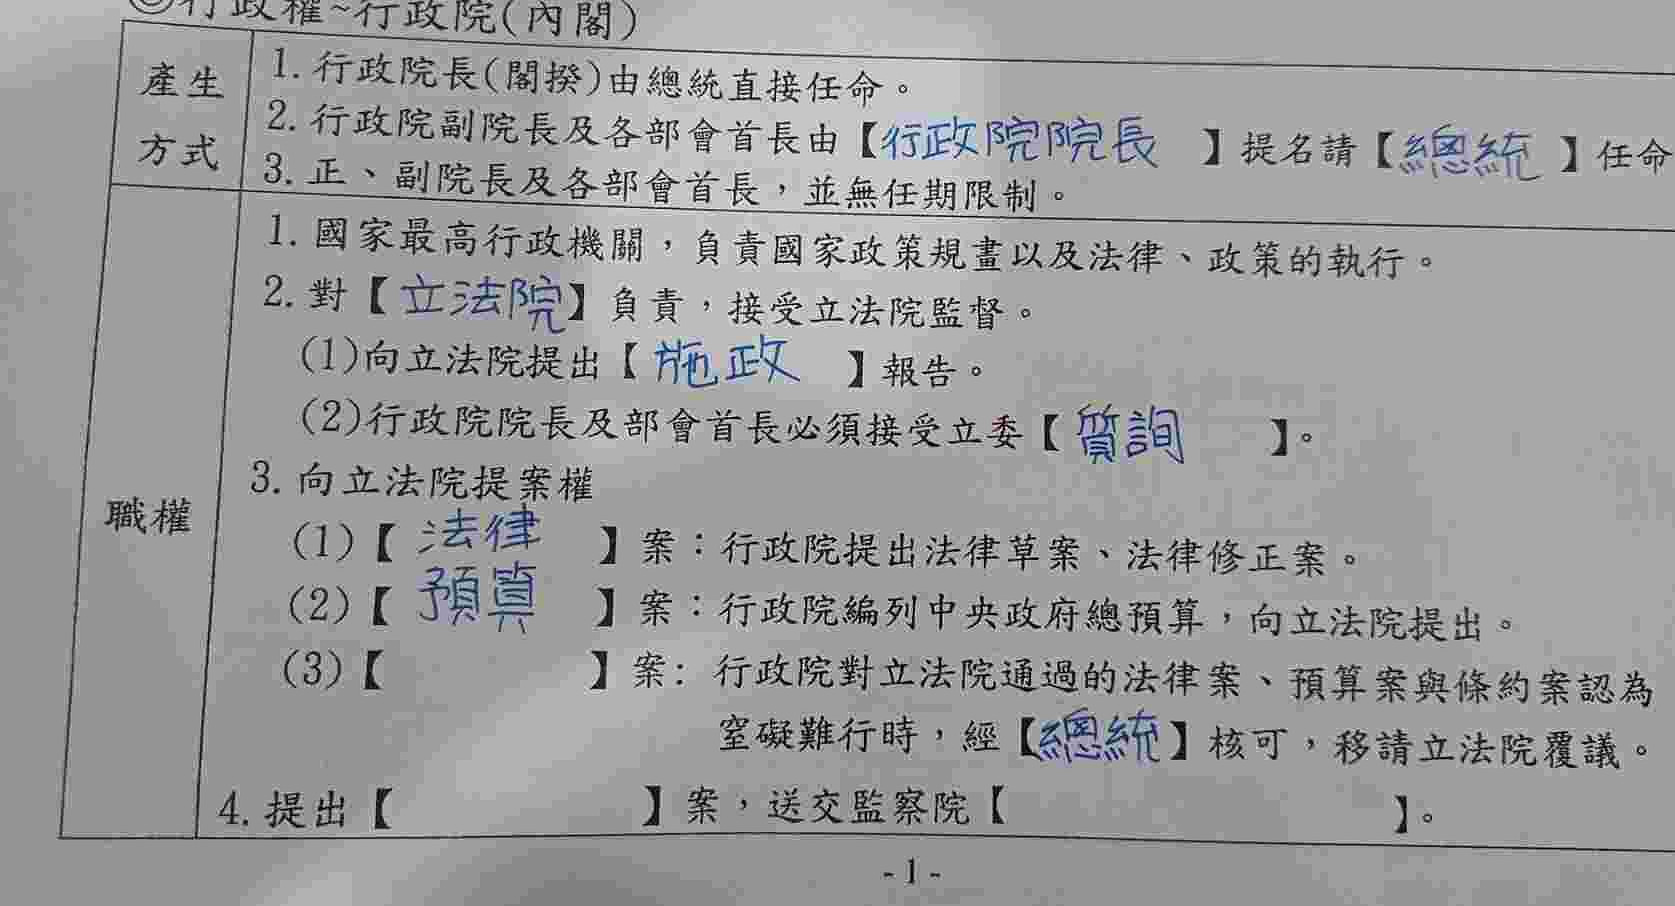 行政權~行政院(內閣)
產生方式
1. 行政院長(閣揆)由總統直接任命。
2. 行政院副院長及各部會首長由【行政院院長】提名請【總統】任命
3. 正、副院長及各部會首長，並無任期限制。
職權
1. 國家最高行政機關，負責國家政策規畫以及法律、政策的執行。
2. 對【立法院】負責，接受立法院監督。
(1)向立法院提出【施政】報告。
(2)行政院院長及部會首長必須接受立委【質詢】。
3. 向立法院提案權
(1)【法律】案：行政院提出法律草案、法律修正案。
(2)【預算】案：行政院編列中央政府總預算，向立法院提出。
(3)【 】案: 行政院對立法院通過的法律案、預算案與條約案認為
窒礙難行時，經【總統】核可，移請立法院覆議。
4. 提出【 】案，送交監察院【 】。
- 1 -